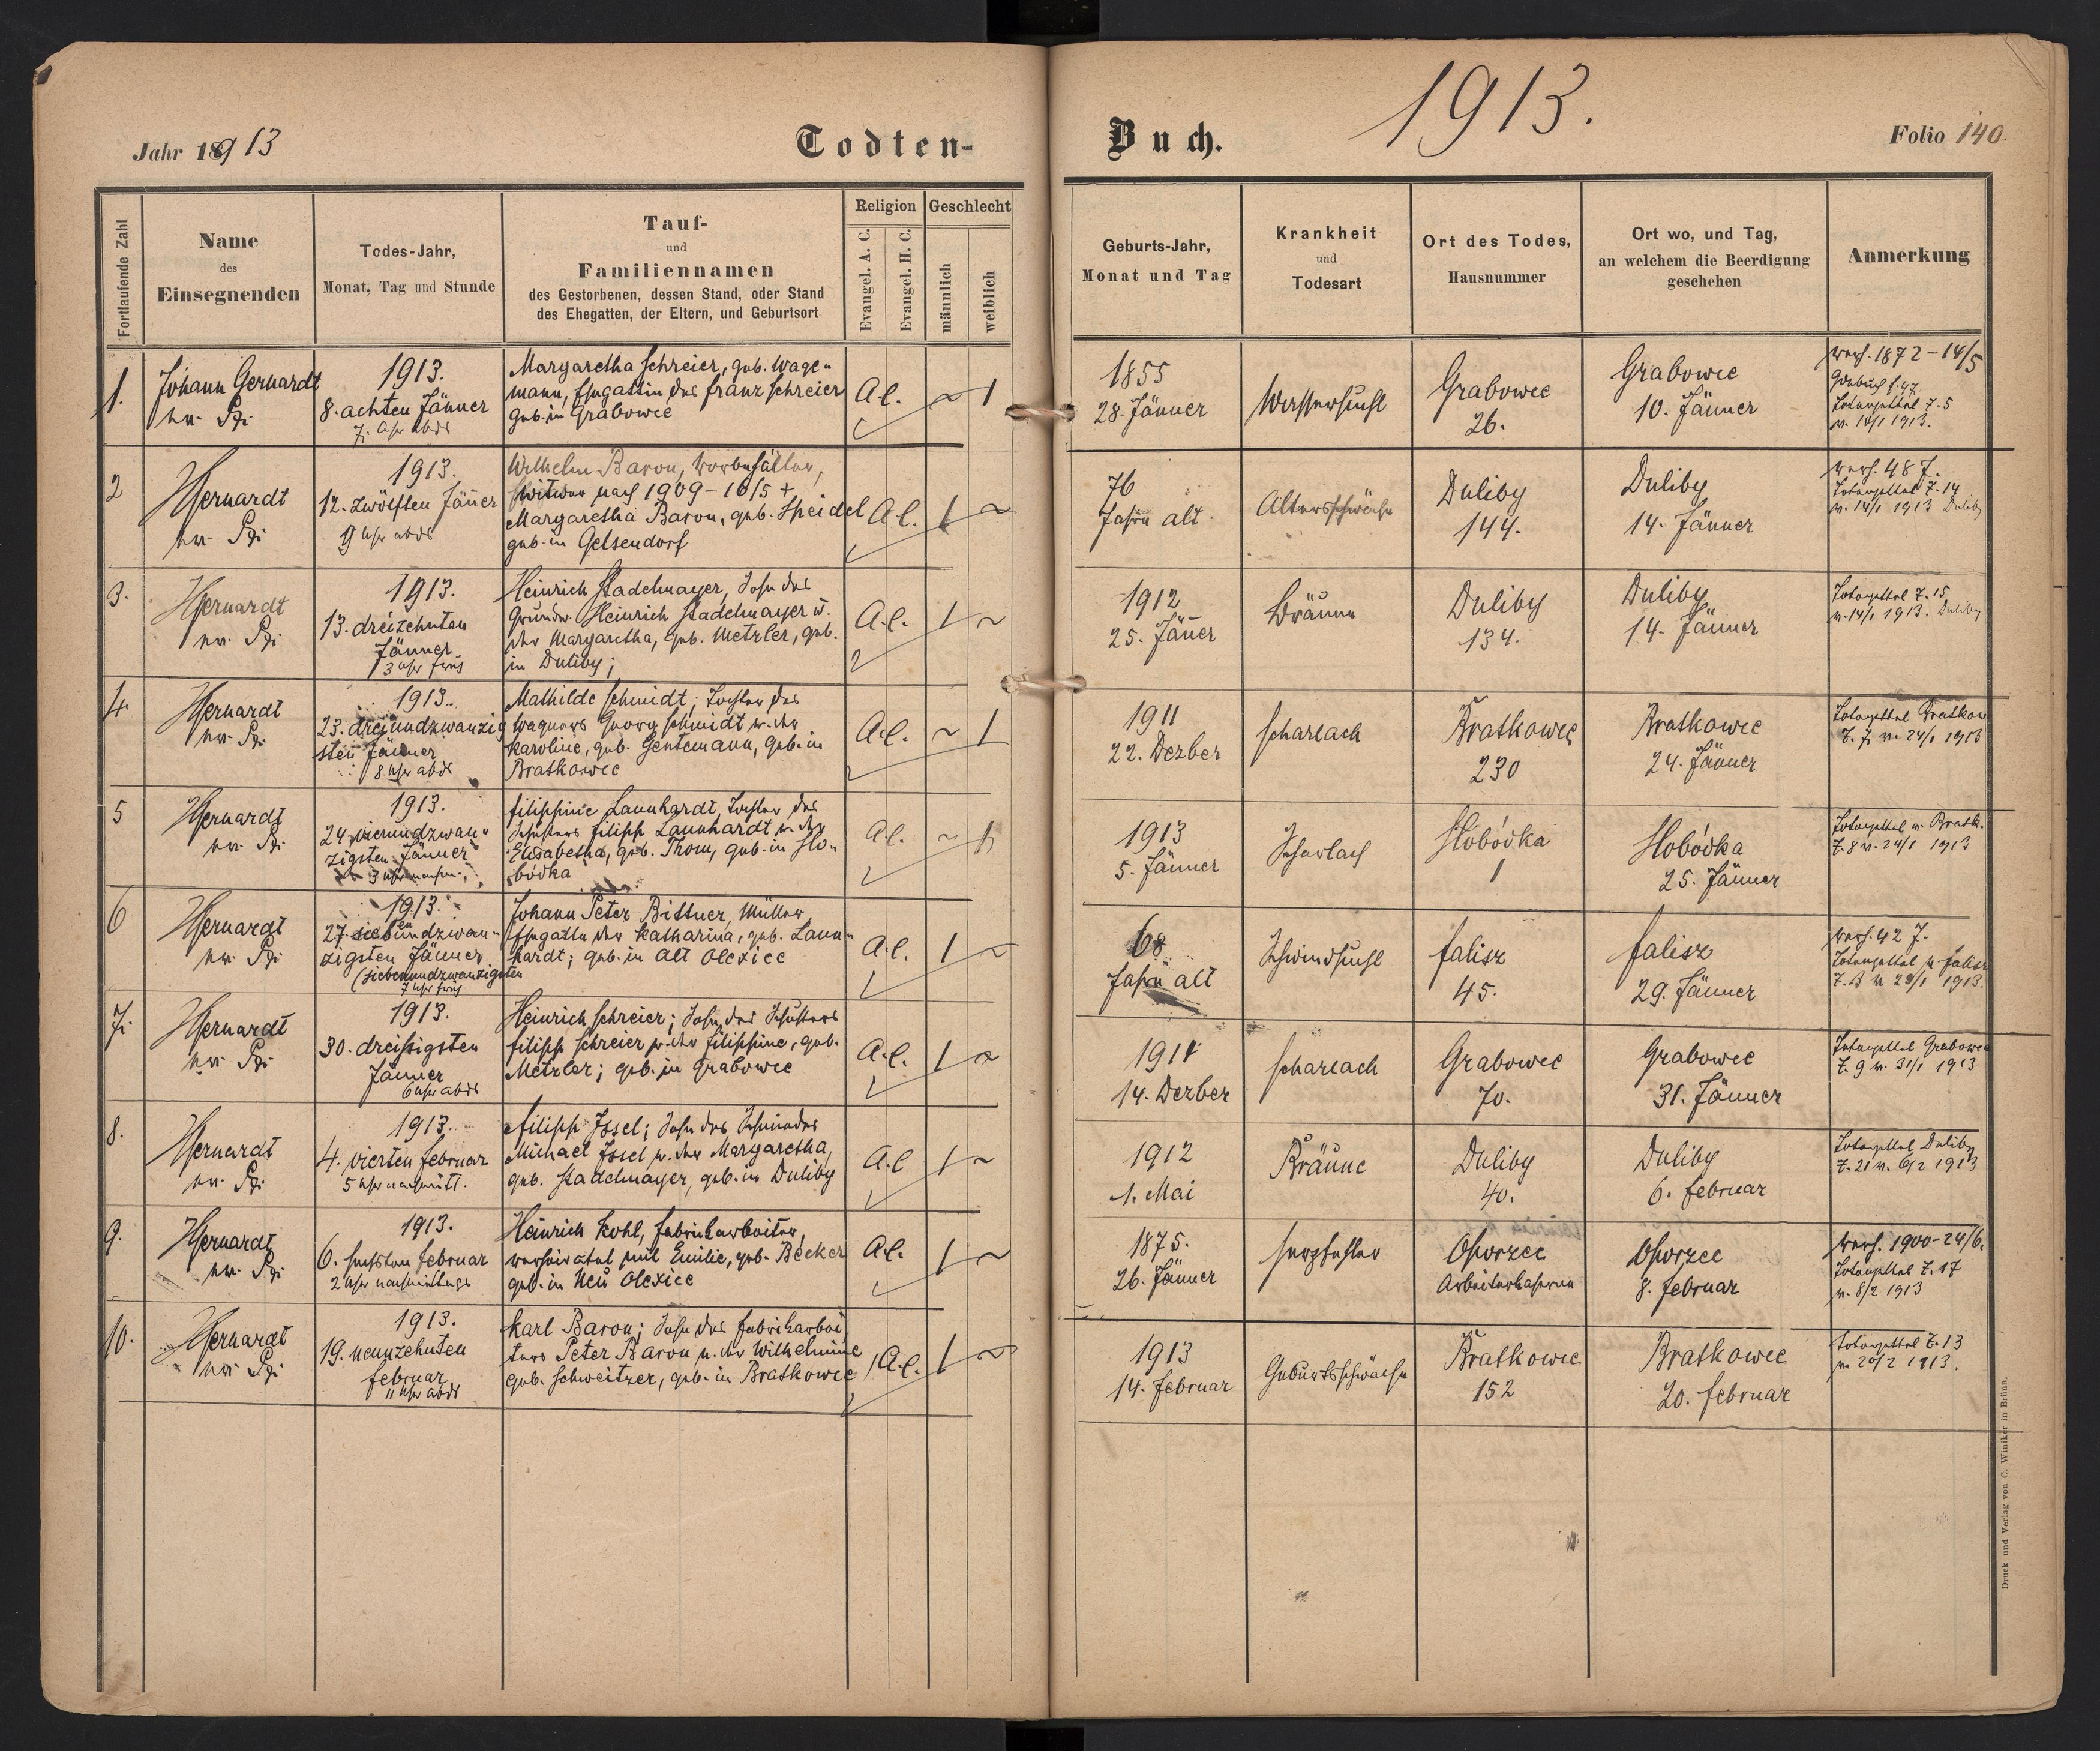 Jahr 1913
Todten-
Fortlaufende Zahl
Name
des
Einsegnenden
Todes-Jahr,
Monat, Tag und Stunde
Tauf-
und
Familiennamen
des Gestorbenen, dessen Stand, oder Stand
des Ehegatten, der Eltern, und Geburtsort
Religion
Evangel. A. C.
Evangel. H. C.
Geschlecht
männlich
weiblich
1.
Johann Gerhardt
1913.
8. achten Jänner
7. Uhr abds
Margaretha Schreier, geb. Wage-
mann, Ehegattin des Franz Schreier
geb. in Grabowce
A.C.
~ 1
2
Gerhardt
1913.
12. zwölften Jänner
9 Uhr abds
Wilhelm Baron,
Witwer nach 1909-16/5 +
Margaretha Baron, geb. Speidel
geb. in Gelsendorf
A.C.
1 ~
3.
Gerhardt
1913.
13. dreizehnten
Jänner
3 Uhr früh
Heinrich Stadelmayer, Sohn des
Grundw. Heinrich Stadelmayer u.
der Margaretha, geb. Metzler, geb.
in Duliby;
A.C.
1 ~
4.
Gerhardt
1913.
23. dreiundzwanzig
sten Jänner
8 Uhr abds
Mathilde Schmidt; Tochter des
Wagners Georg Schmidt u. der
Karoline, geb. Gentemann, geb. in
Bratkowce
A.C.
~ 1
5
Gerhardt
1913.
24. vierundzwan-
zigsten Jänner
Filippine Launhardt, Tochter des
Schusters Filipp Launhardt u. der
Elisabetha, geb. Thom, geb. in Slo-
bódka
A.C.
~ 1
6
Gerhardt
1913.
27. siebenundzwan-
zigsten Jänner
(siebenundzwanzigsten
7 Uhr früh
Johann Peter Bittner, Müller,
Ehegatte der Katharina, geb. Laun-
hardt; geb. in Alt Olexice
A.C.
1 ~
7.
Gerhardt
1913.
30. dreissigsten
Jänner
6 Uhr abds
Heinrich Schreier; Sohn des Schusters
Filipp Schreier u. der Filippine, geb.
Metzler; geb. in Grabowce
A.C.
1 ~
8.
Gerhardt
1913.
4. vierten Februar
5 Uhr nachmitt.
Filipp Issel; Sohn des Schneiders
Michael Issel u. der Margaretha,
geb. Stadelmayer, geb. in Duliby
A.C
1 ~
9.
Gerhardt
1913.
6. sechsten Februar
2 Uhr nachmittags
Heinrich Kohl, Fabriksarbeiter,
verheiratet mit Emilie, geb. Becker
geb. in Neu Olexice
A.C.
1 ~
10.
Gerhardt
1913.
19. neunzehnten
Februar
11 Uhr abds
Karl Baron; Sohn des Fabriksarbei
ters Peter Baron u. der Wilhelmine
geb. Schweitzer, geb. in Bratkowce
A.C.
1 ~
Buch.
1913.
Folio 140.
Geburts-Jahr,
Monat und Tag
Krankheit
und
Todesart
Ort des Todes,
Hausnummer
Ort wo, und Tag,
an welchem die Beerdigung
geschehen
Anmerkung
1855
28. Jänner
Wassersucht
Grabowce
26.
Grabowce
10. Jänner
verh. 1872-14/5
Totenzettel Z. 5
1913.
76
Jahre alt.
Altersschwäche
Duliby
144.
Duliby
14. Jänner
verh. 48 J.
Totenzettel Z. 14
v. 14/1 1913 Duliby
1912
25. Jäner
Bräune
Duliby
134.
Duliby
14. Jänner
Totenzettel Z. 15
v. 14/1 1913. Duliby
1911
22. Dezber
Scharlach
Bratkowce
230
Bratkowce
24. Jänner
Totenzettel Bratkow
Z. 7. v. 24/1 1913
1913
5. Jänner
Scharlach
Slobódka
1
Slobódka
25. Jänner
Totenzettel v. Bratk.
Z. 8 v. 24/1 1913
68
Jahre alt
Schwindsucht
Falisz
45.
Falisz
29. Jänner
verh. 42 J.
Totenzettel v. Falisz
1913.
1911
14. Dezber
Scharlach
Grabowce
70.
Grabowce
31. Jänner
Totenzettel Grabowce
Z. 9 v. 31/1 1913
1912
1. Mai
Bräune
Duliby
40.
Duliby
6. Februar
Totenzettel Duliby
Z. 21 v. 6/2 1913
1875.
26. Jänner
Herzfehler
Oporzec
Arbeiterkaserne
Oporzec
8. Februar
verh. 1900-24/6.
Totenzettel Z. 17
v. 8/2 1913
1913
14. Februar
Geburtsschwäche
Bratkowce
152
Bratkowce
20. Februar
Totenzettel Z. 13
v. 20/2 1913.
Druck und Verlag von C. Winiker in Brünn.